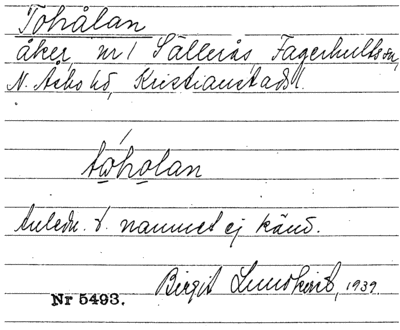 Tohålan
åker, nr 1 Sällerås Fagerhults sn,
N. Åsbo hd, Kristianstads l.
tωhωlan
Anledn. t. namnet ej känd.
Birgit Lundkvist, 1939.
Nr 5493.